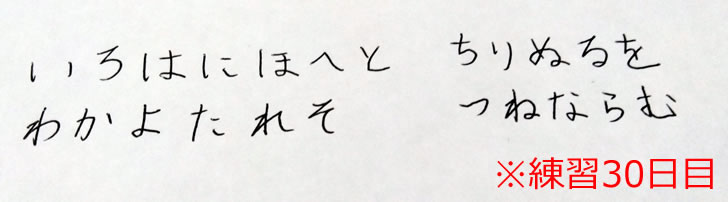 いろはにほへと　ちりぬるを
わかよたれそ　つねならむ
※練習30日目